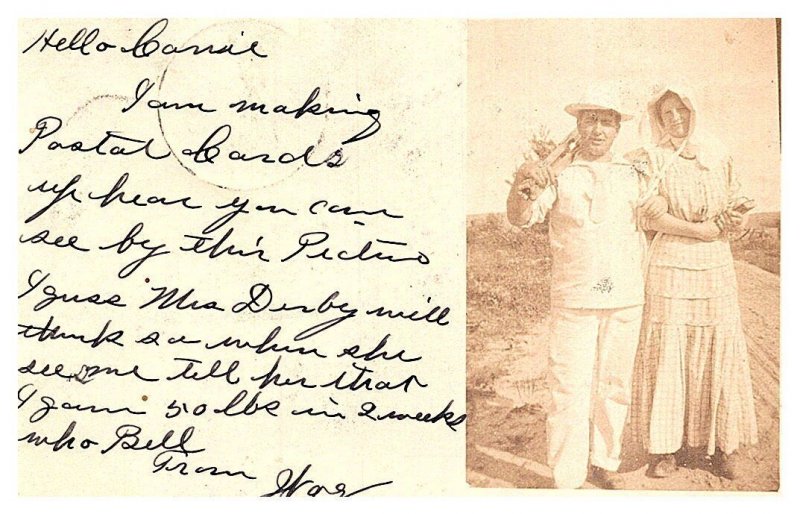 Hello Carrie
I am making
Postal Cards
up hear you can
see by this Pictus
I guss Mrs Derby will
think so when she
see me tell her that
I gain 50 lbs in 2 weeks
who Bell
From